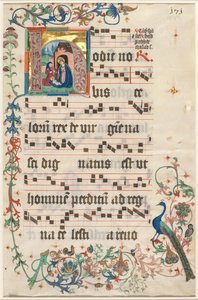 Hodie no
bis ce
lorum rex de virgine na
sci dig natus est ut
hominem perditum ad reg
na ce lestia reuo